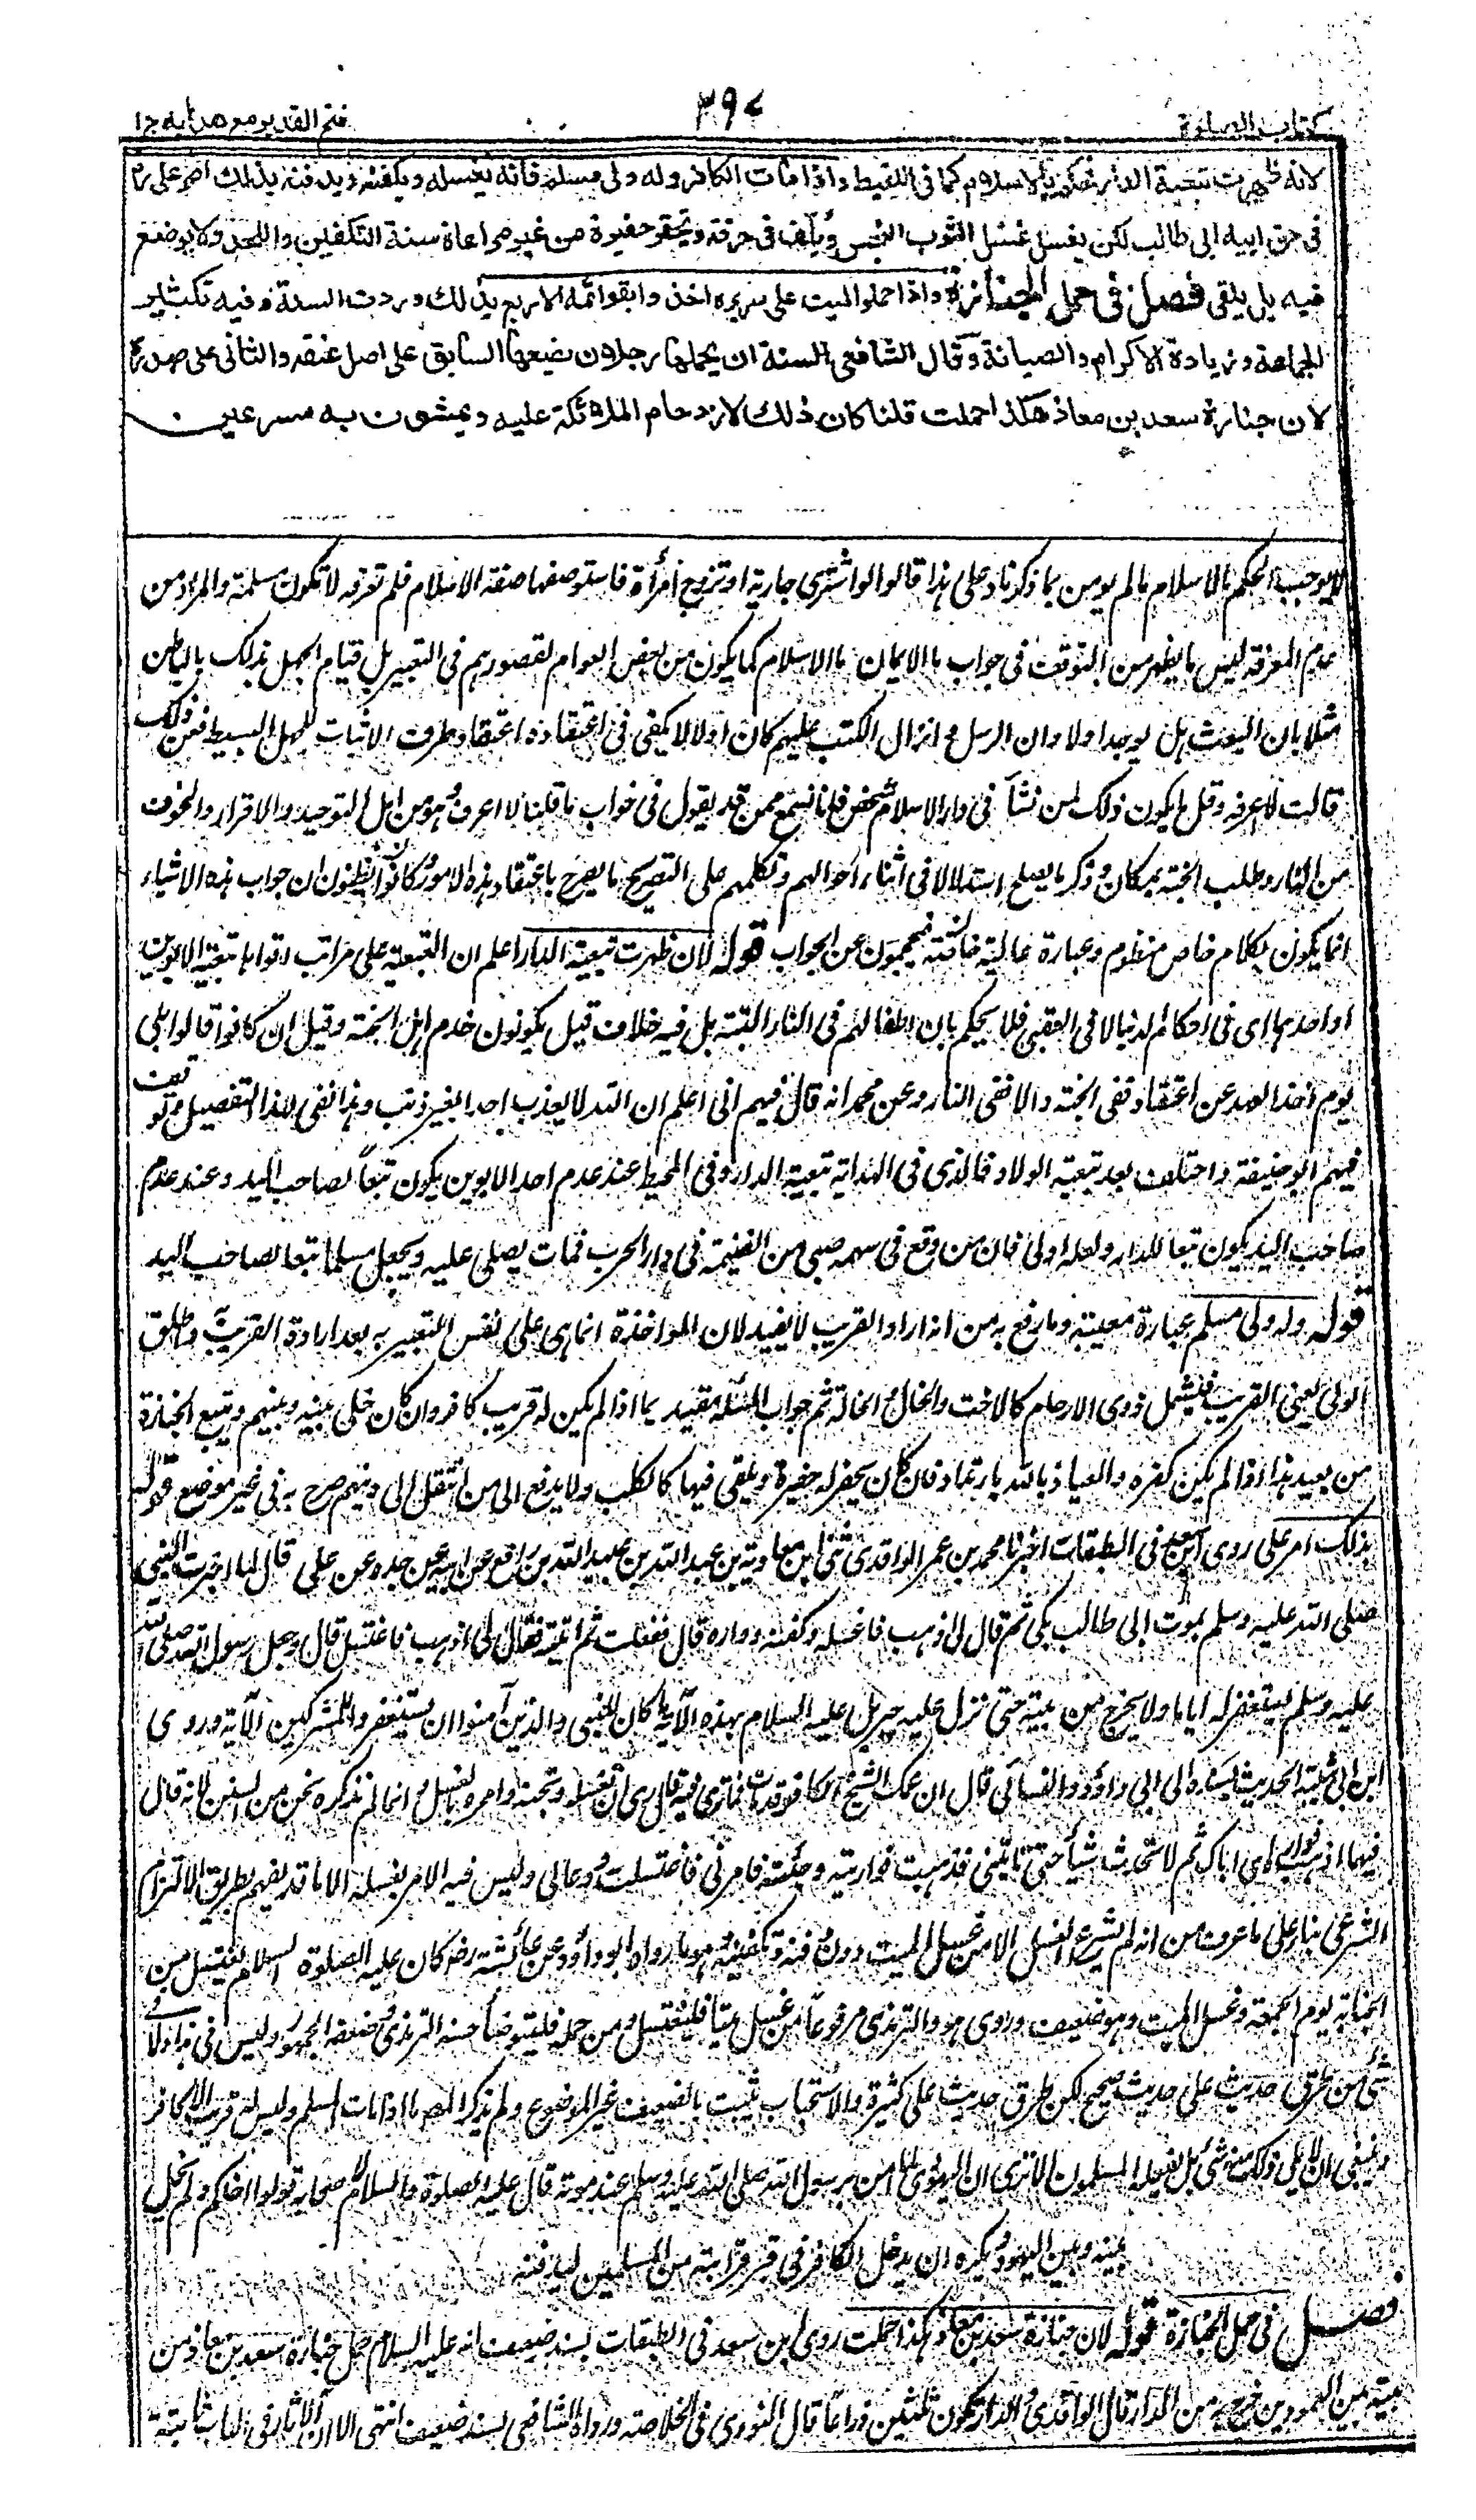 كتاب الصلوة
٣٩٧
فتح القدير مع هدايه ج١
لانه ظهرت تبعية الدار فحكم بالاسلام كما فى اللقيط واذا مات الكافر وله ولى مسلم فانه يغسله ويكفنه ويدفنه بذلك امر على رض
فى حق ابيه ابى طالب لكن يغسل غسل الثوب النجس ويلف فى خرقة ويحفر حفيرة من غير مراعاة سنة التكفين واللحد ولا يوضع
فيه بل يلقى فصل فى حمل الجنازة واذا حملوا الميت على سريره اخذوا بقوائمه الاربع بذلك وردت السنة وفيه تكثير
الجماعة وزيادة الاكرام والصيانة وقال الشافعى السنة ان يحملها رجلان يضعها السابق على اصل عنقه والثانى على صدره
لان جنازة سعد بن معاذ هكذا حملت قلنا كان ذلك لازدحام الملائكة عليه ويمشون به مسرعين
لا يوجب الحكم بالاسلام مالم يومن بما ذكرنا وعلى هذا قالوا لو اشترى جارية او تزوج امرأة فاستوصفها صفة الاسلام فلم تعرفه لا تكون مسلمة والمراد من
عدم المعرفة ليس ما يظهر من التوقف فى جواب ما الايمان ما الاسلام كما يكون من بعض العوام لقصورهم فى التعبير بل قيام الجهل بذلك بالباطن
مثلا بان البعث هل يوجد اولا وان الرسل وانزال الكتب عليهم كان اولا لا يكفى فى اعتقاده اعتقاد طرف الاثبات للجهل البسيط فعن ذلك
قالت لا اعرفه وقل ما يكون ذلك لمن نشأ فى دار الاسلام فانا نسمع ممن قد يقول فى جواب ما قلنا لا اعرف وهو من اهل التوحيد والاقرار والخوف
من النار وطلب الجنة بمكان وذكر ما يصلح استدلالا فى اثناء احوالهم وتكلمهم على التصريح ما يصرح باعتقاد هذه الامور وكانوا يظنون ان جواب هذه الاشياء
انما يكون بكلام خاص منظوم وعبارة عالية خاصة فيحجمون عن الجواب قوله لان ظهرت تبعية الدار اعلم ان التبعية على مراتب اقواها تبعية الابوين
او احدهما اى فى احكام الدنيا لا فى العقبى فلا يحكم بان اطفالهم فى النار البتة بل فيه خلاف قيل يكونون خدم اهل الجنة وقيل ان كانوا قالوا بلى
يوم اخذ العهد عن اعتقاد ففى الجنة والا ففى النار وعن محمد انه قال فيهم انى اعلم ان الله لا يعذب احدا بغير ذنب وهذا نفى لهذا التفصيل وتوقف
فيهم ابو حنيفة واختلف بعد تبعية الولاد فالذى فى الهداية تبعية الدار وفى المحيط عند عدم احد الابوين يكون تبعاً لصاحب اليد وعند عدم
صاحب اليد يكون تبعا للدار ولعله اولى فان من وقع فى سهمه صبى من الغنيمة فى دار الحرب فمات يصلى عليه ويجعل مسلما تبعا لصاحب اليد
قوله وله ولى مسلم عبارة معيبة وما دفع به من انه اراد القريب لا يفيد لان المؤاخذة انما هى على نفس التعبير به بعد ارادة القريب به واطلق
الولى يعنى القريب فيشمل ذوى الارحام كالاخت والخال والخالة ثم جواب المسئلة مقيد بما اذا لم يكن له قريب كافر وان كان خلى بينه وبينهم ويتبع الجنازة
من بعيد هذا اذا لم يكن كفره والعياذ بالله بارتداد فان كان يحفر له حفيرة ويلقى فيها كالكلب ولا يدفع الى من انتقل الى دينهم صرح به فى غير موضع قوله
بذلك امر على روى ابن سعد فى الطبقات اخبرنا محمد بن عمر الواقدى ثنى ابن معاوية بن عبد الله بن عبيد الله بن ابى رافع عن ابيه عن جده عن على قال لما اخبرت النبى
صلى الله عليه وسلم بموت ابى طالب بكى ثم قال لى اذهب فاغسله وكفنه وواره قال ففعلت ثم اتيته فقال لى اذهب فاغتسل قال وجعل رسول الله صلى الله
عليه وسلم يستغفر له اياما ولا يخرج من بيته حتى نزل عليه جبريل عليه السلام بهذه الآية ما كان للنبى والذين آمنوا ان يستغفروا للمشركين الآية وروى
ابن ابى شيبة الحديث بسند ابى داؤد والنسائى قال ان عمك الشيخ الكافر قد مات فما ترى فيه قال ارى ان تغسله وتجنه وامره بالغسل وانما لم نذكره نحن من السنن لانه قال
فيهما اذهب فوار اباك ثم لا تحدثن شيأ حتى تأتينى فذهبت فواريته وجئته فامرنى فاغتسلت ودعا لى وليس فيه الامر بغسله الا ما قد يفهم بطريق الالتزام
الشرعى بناء على ما عرف من انه لم يشرع الغسل الا من غسل الميت دون دفنه وتكفينه وهو ما رواه ابو داؤد عن عائشة رض كان عليه الصلوة والسلام يغتسل من
الجنابة يوم الجمعة وغسل الميت وهو ضعيف وروى هو والترمذى مرفوعاً من غسل ميتا فليغتسل ومن حمله فليتوضأ حسنه الترمذى وضعفه الجمهور وليس فى هذا ولا فى
شئ من طرق حديث على حديث صحيح لكن طرق حديث على كثيرة والاستحباب يثبت بالضعيف غير الموضوع ولم يذكر المصـ ما اذا مات المسلم وليس له قريب الا كافر
وينبغى ان لا يلى ذلك منه شئ بل يفعله المسلمون الا ترى ان اليهودى لما آمن برسول الله صلى الله عليه وسلم عند موته قال عليه الصلوة والسلام لاصحابه تولوا اخاكم ولم يخل
بينه وبين اليهود ويكره ان يدخل الكافر فى قبر قرابته من المسلمين ليدفنه
فصل فى حمل الجنازة قوله لان جنازة سعد بن معاذ هكذا حملت روى ابن سعد فى الطبقات بسند ضعيف انه عليه السلام حمل جنازة سعد بن معاذ من
بيته بين العمودين خرج به من الدار قال الواقدى والدار تكون ثلثين ذراعاً قال النووى فى الخلاصة ورواه الشافعى بسند ضعيف انتهى الا ان الآثار فى الباب ثابتة